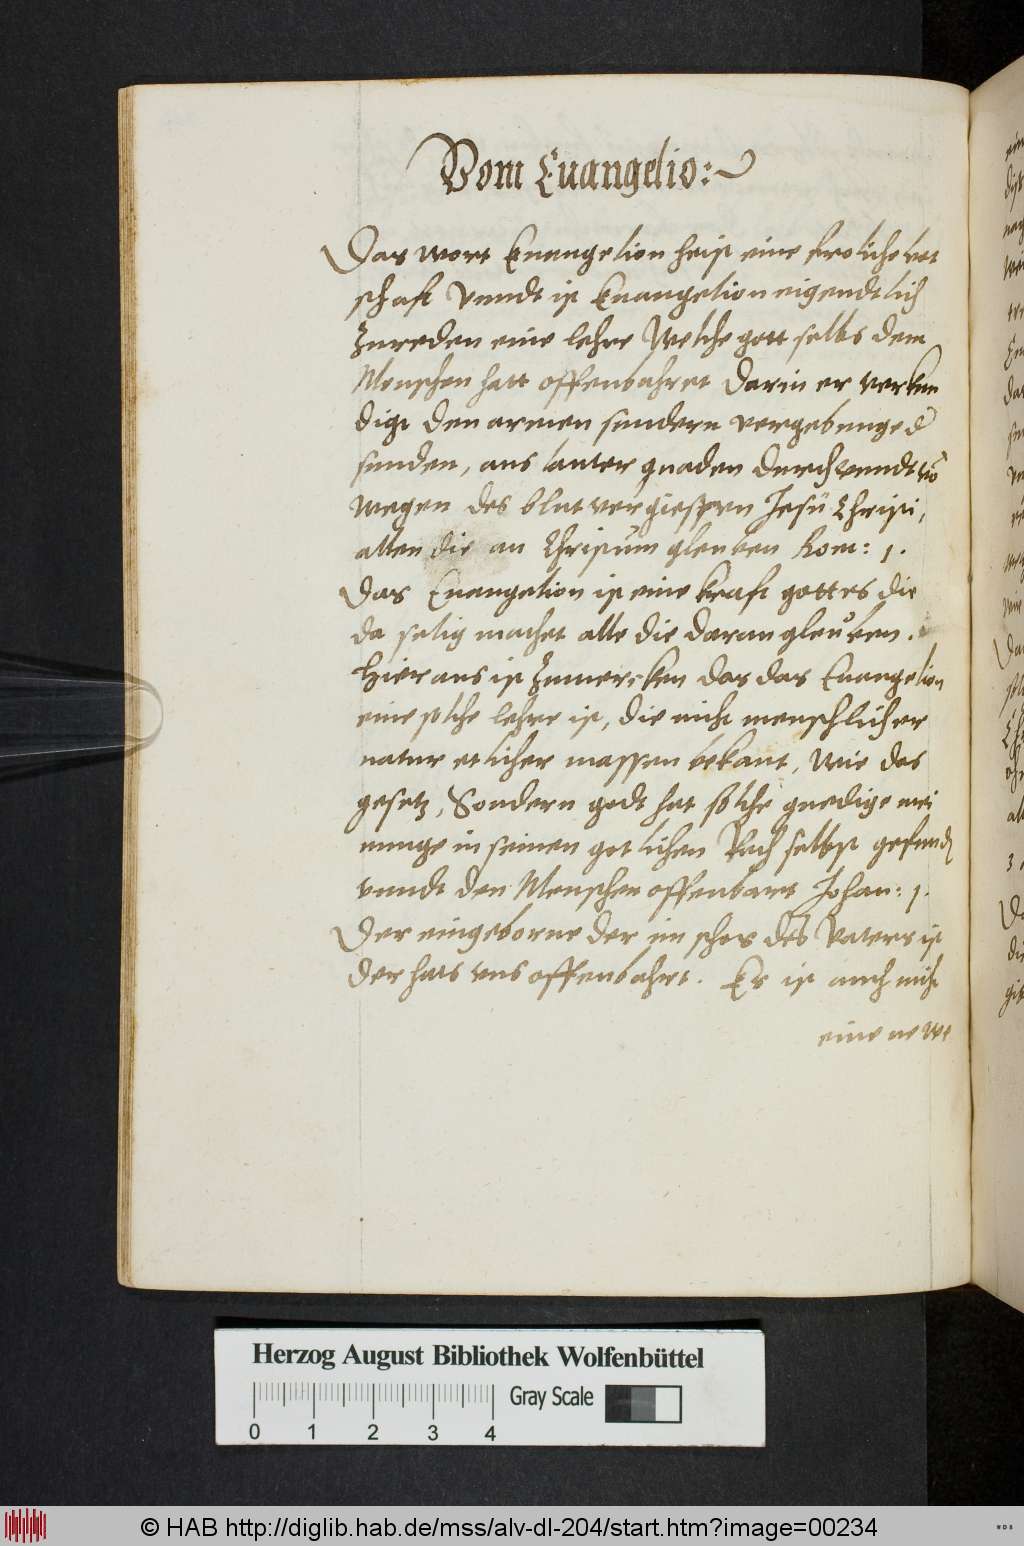 Vom Euangelio:
Das wort Euangelion heist eine froliche bot
schaft vnndt ist Euangelion eigendtlich
Zureden eine lehre Welche gott selbs dem
Menschen hatt offenbahret darin er verkun
digt den armen sundern vergebunge der
sunden, aus lauter gnaden durch vnndt vō
wegen des blutvergiessen Jesu Christi,
allen die an Christum gleuben Rom: 1.
Das Euangelion ist eine kraft gottes die
da selig machet alle die daran gleuben.
Hieraus ist Zumercken das das Euangelion
eine solche lehre ist, die nicht menschlicher
natur etlicher massen bekant, wie das
gesetz, Sondern godt hat solche gnedige mei
nunge in seinen gotlichen Rach selbst gefunden
vnndt den Menschen offenbart Johan: 1.
Der eingeborne der im schos des Vaters ist
der hats vns offenbahrt. Es ist auch nicht
eine newe
Herzog August Bibliothek Wolfenbüttel
0 1 2 3 4
Gray Scale
© HAB http://diglib.hab.de/mss/alv-dl-204/start.htm?image=00234